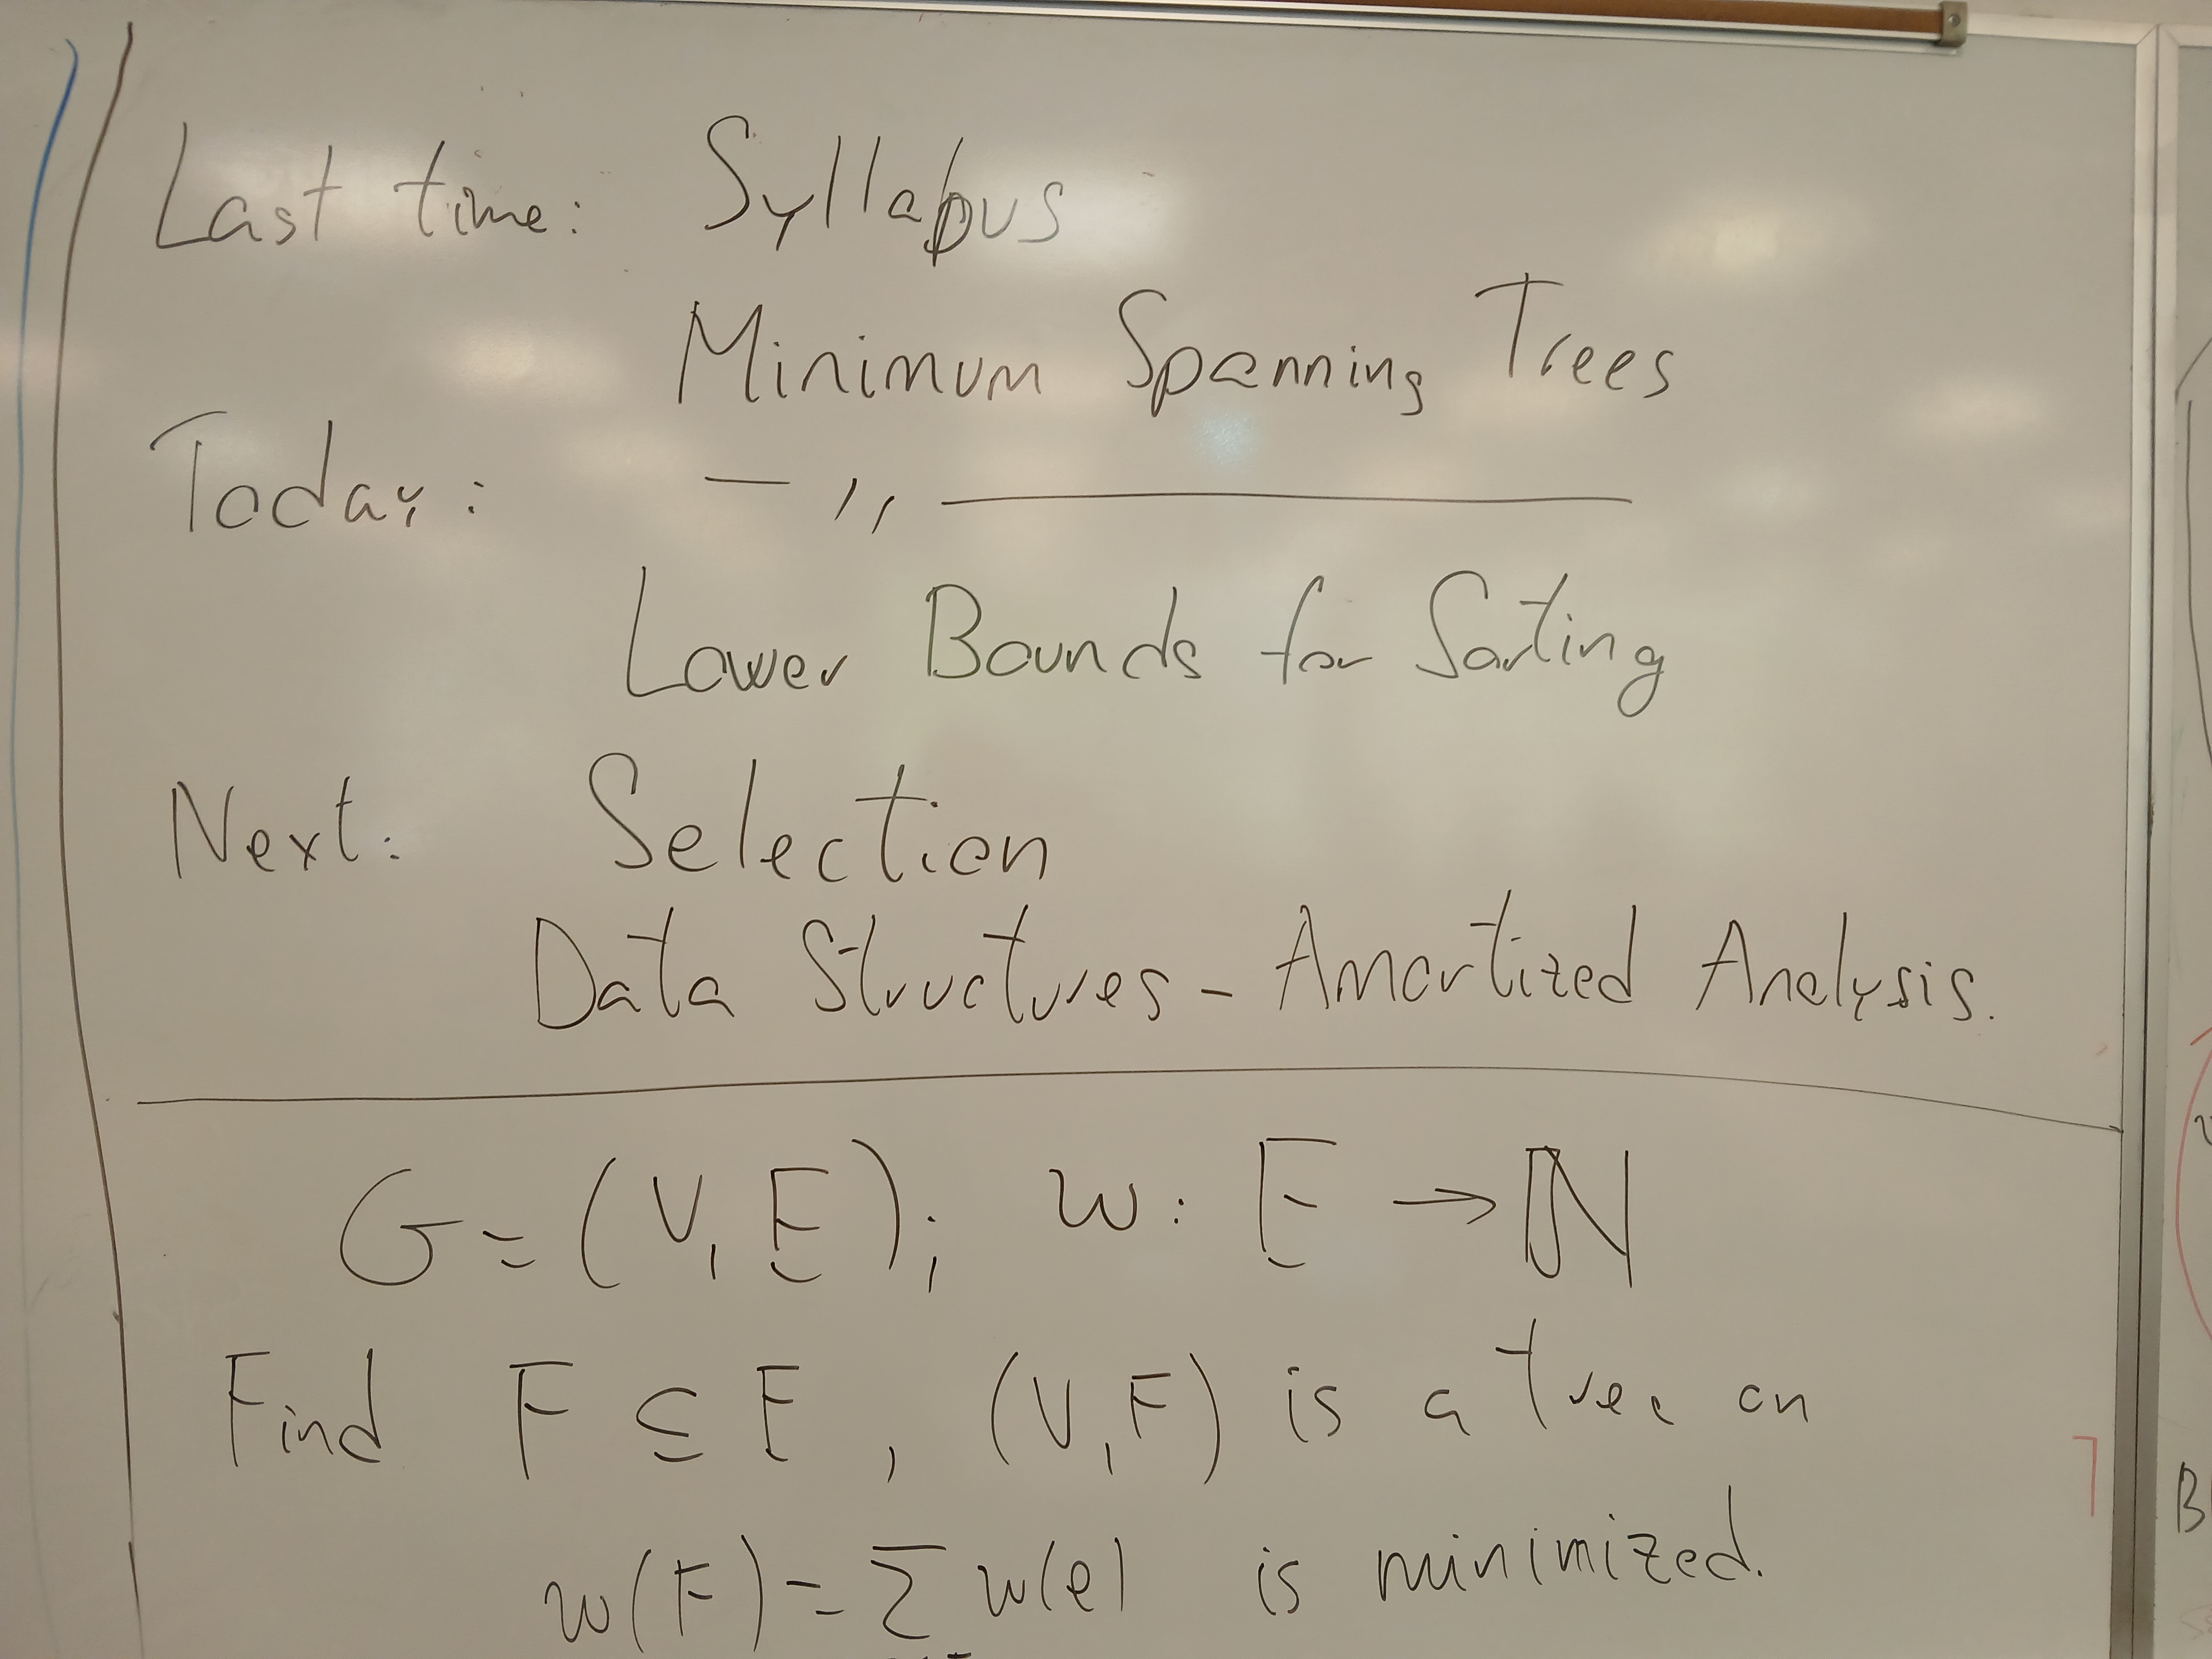 Last time: Syllabus
Minimum Spanning Trees
Today: — ,, ————
Lower Bounds for Sorting
Next: Selection
Data Structures - Amortized Analysis.
G = (V, E); w: E → ℕ
Find F ⊆ E, (V, F) is a tree on
w(F) = Σ w(e) is minimized.
B